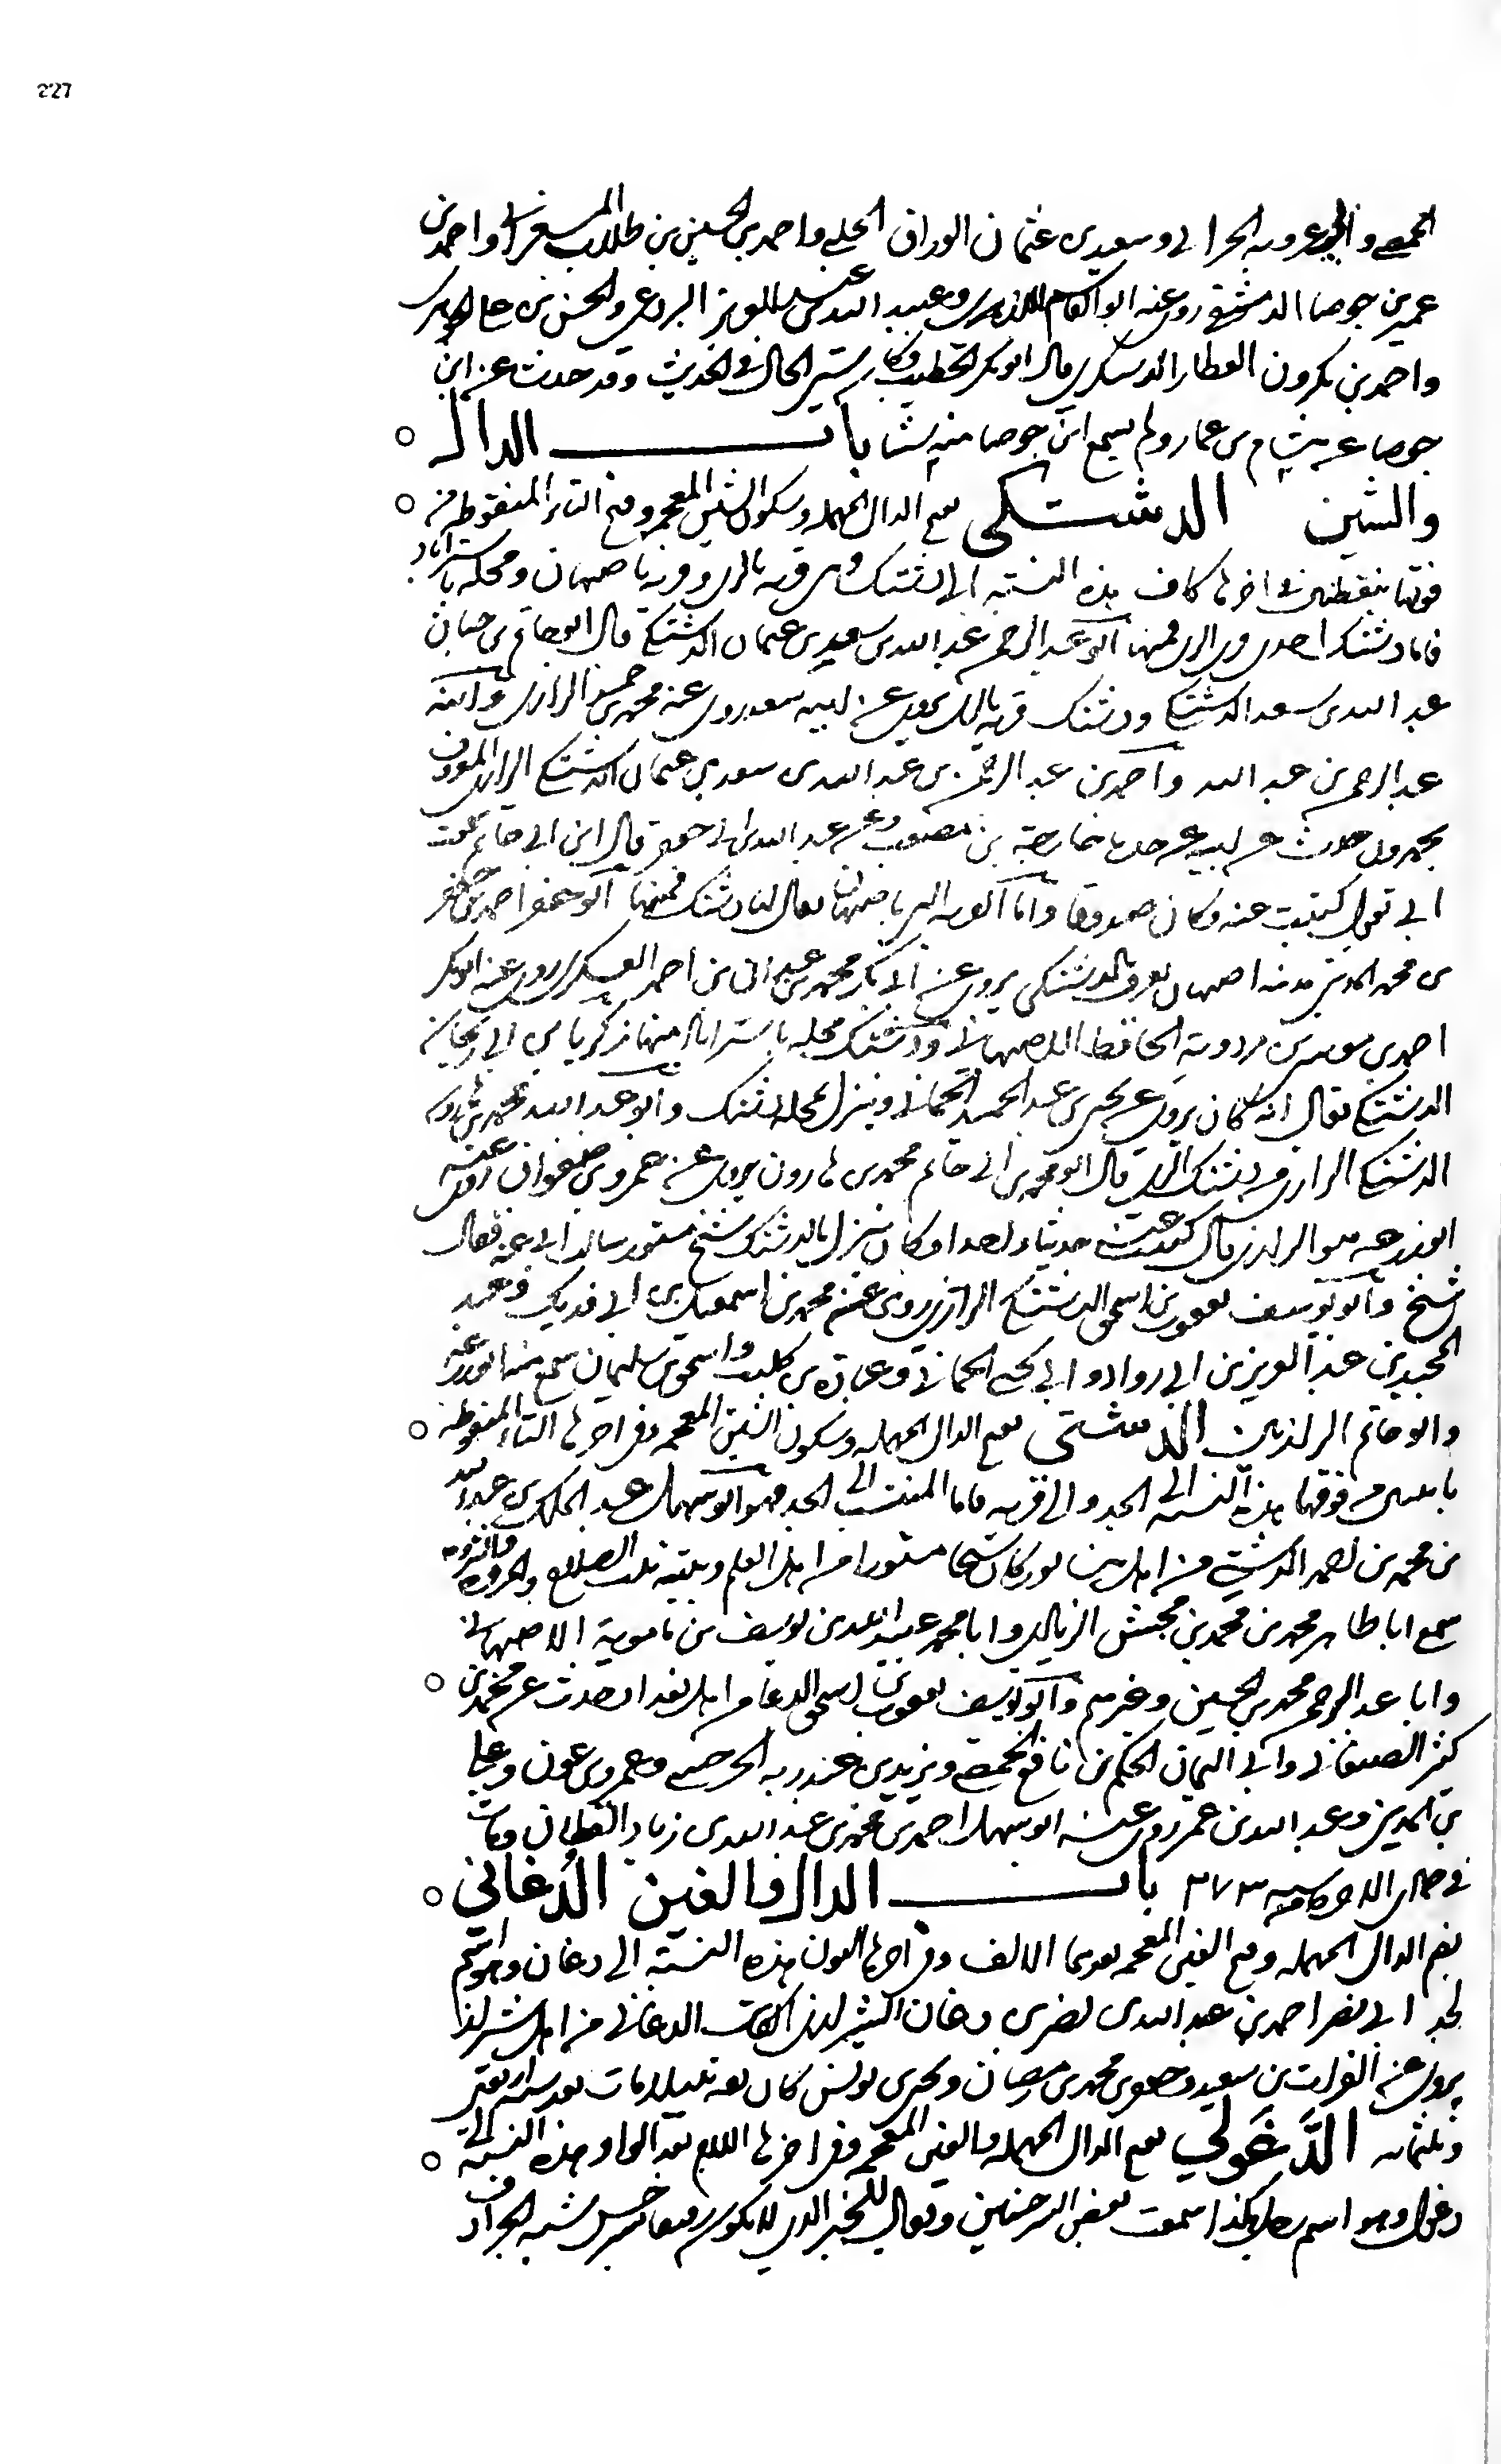 227
الحمصي وابي عروبه الحراني وسعيد بن عثمان الوراق الحلبي واحمد بن الحسين بن طلاب المسغراني واحمد بن
عمير بن جوصا الدمشقي روى عنه ابو القاسم الازهري وعبيد الله بن عبد العزيز البردعي والحسن بن علي الجوهري
واحمد بن بكرون العطار الدسكري قال ابو بكر الخطيب وكان يستر الحال في الحديث وقد حدث عن ابن
جوصا عن هشام بن عمار ولم يسمع ابن جوصا منه شيئا باب الدال
والشين الدشتكي بفتح الدال المهمله وسكون الشين المعجمه وفتح التاء المنقوطه من
فوقها بنقطتين في اخرها كاف هذه النسبه الى دشتك وهي قريه بالري وقريه باصبهان ومحله باستراباد
فاما دشتك احدى قرى الري فمنها ابو عبد الرحمن عبد الله بن سعيد بن عثمان الدشتكي قال ابو حاتم بن حبان
عبد الله بن سعد الدشتكي ودشتك قريه بالري يروي عن ابيه سعد روى عنه محمد بن حميد الرازي وابنه
عبد الرحمن بن عبد الله واحمد بن عبد الرحمن بن عبد الله بن سعد بن عثمان الدشتكي الرازي المعروف
بحمدون حدث عن ابيه عن خارجة بن مصعب وعن عبد الله بن ابي جعفر قال ابن ابي حاتم سمعت
ابي يقول كتبت عنه وكان صدوقا واما القريه التي باصبهان يقال لها دشتك فمنها ابو جعفر احمد بن جعفر
بن محمد المديني مدينه اصبهان يعرف بالدشتكي يروي عن ابي بكر محمد بن عبدان بن احمد العسكري روى عنه ابو بكر
احمد بن موسى بن مردويه الحافظ الاصبهاني ودشتك محله باستراباد منها زكريا بن ابي ريحانه
الدشتكي يقال انه كان يروي عن يحيى بن عبد الحميد الحماني وينزل بمحله دشتك وابو عبد الله محمد بن هارون
الدشتكي الرازي من دشتك الري قال ابو محمد بن ابي حاتم محمد بن هارون يروي عن عمرو بن صفوان روى عنه
ابو زرعه الرازي قال كتبت عنه حديثا واحدا وكان ينزل بالدشتك شيخ مستور سالت ابي عنه فقال
شيخ وابو يوسف يعقوب بن اسحق الدشتكي الرازي روى عن محمد بن اسمعيل بن ابي فديك وعبد
المجيد بن عبد العزيز بن ابي رواد وابي يحيى الحماني وعباده بن كليب واسحق بن سليمان سمع منه ابو زرعه
وابو حاتم الرازيان الدشتي بفتح الدال المهمله وسكون الشين المعجمه وفي اخرها التاء المنقوطه
باثنتين من فوقها هذه النسبه الى الجد والى قريه فاما المنتسب الى الجد فهو ابو سهل عبد الملك بن عبد الله
بن محمد بن احمد الدشتي من اهل نيسابور كان شيخا مستورا من اهل العلم وبقيه
سمع ابا طاهر محمد بن محمد بن محمش الزيادي وابا محمد عبد الله بن يوسف بن مامويه الاصبهاني
وابا عبد الرحمن محمد بن الحسين وغيرهم وابو يوسف يعقوب بن اسحق الدعا من اهل بغداد حدث عن محمد بن
كثير الصنعاني وابي اليمان الحكم بن نافع الحمصي ويزيد بن عبد ربه الجرجسي وعمرو بن عون وعلي
بن المديني وعبد الله بن عمر روى عنه ابو سهل احمد بن محمد بن عبد الله بن زياد القطان ومات
في جمادى الاخره سنه ٢٧٣ باب الدال والغين الدُغاني
بضم الدال المهمله وفتح الغين المعجمه بعدهما الالف وفي اخرها النون هذه النسبة الى دغان وهو اسم
لجد ابي نصر احمد بن عبد الله بن نصر بن دغان الدغاني من اهل
يروي عن الفرات بن سعيد وحفص ومحمد بن ويحيى بن يونس كان مات بعد سنه اربعين
وثلثمائه الدَّغَولي بفتح الدال المهمله والغين المعجمه وفي اخرها اللام بعد الواو هذه النسبه الى
دغول وهو اسم رجل هكذا سمعت بعض السرخسيين ويقال للخبز الذي لا يكون رقيقا بسرخس شبه الجرادق